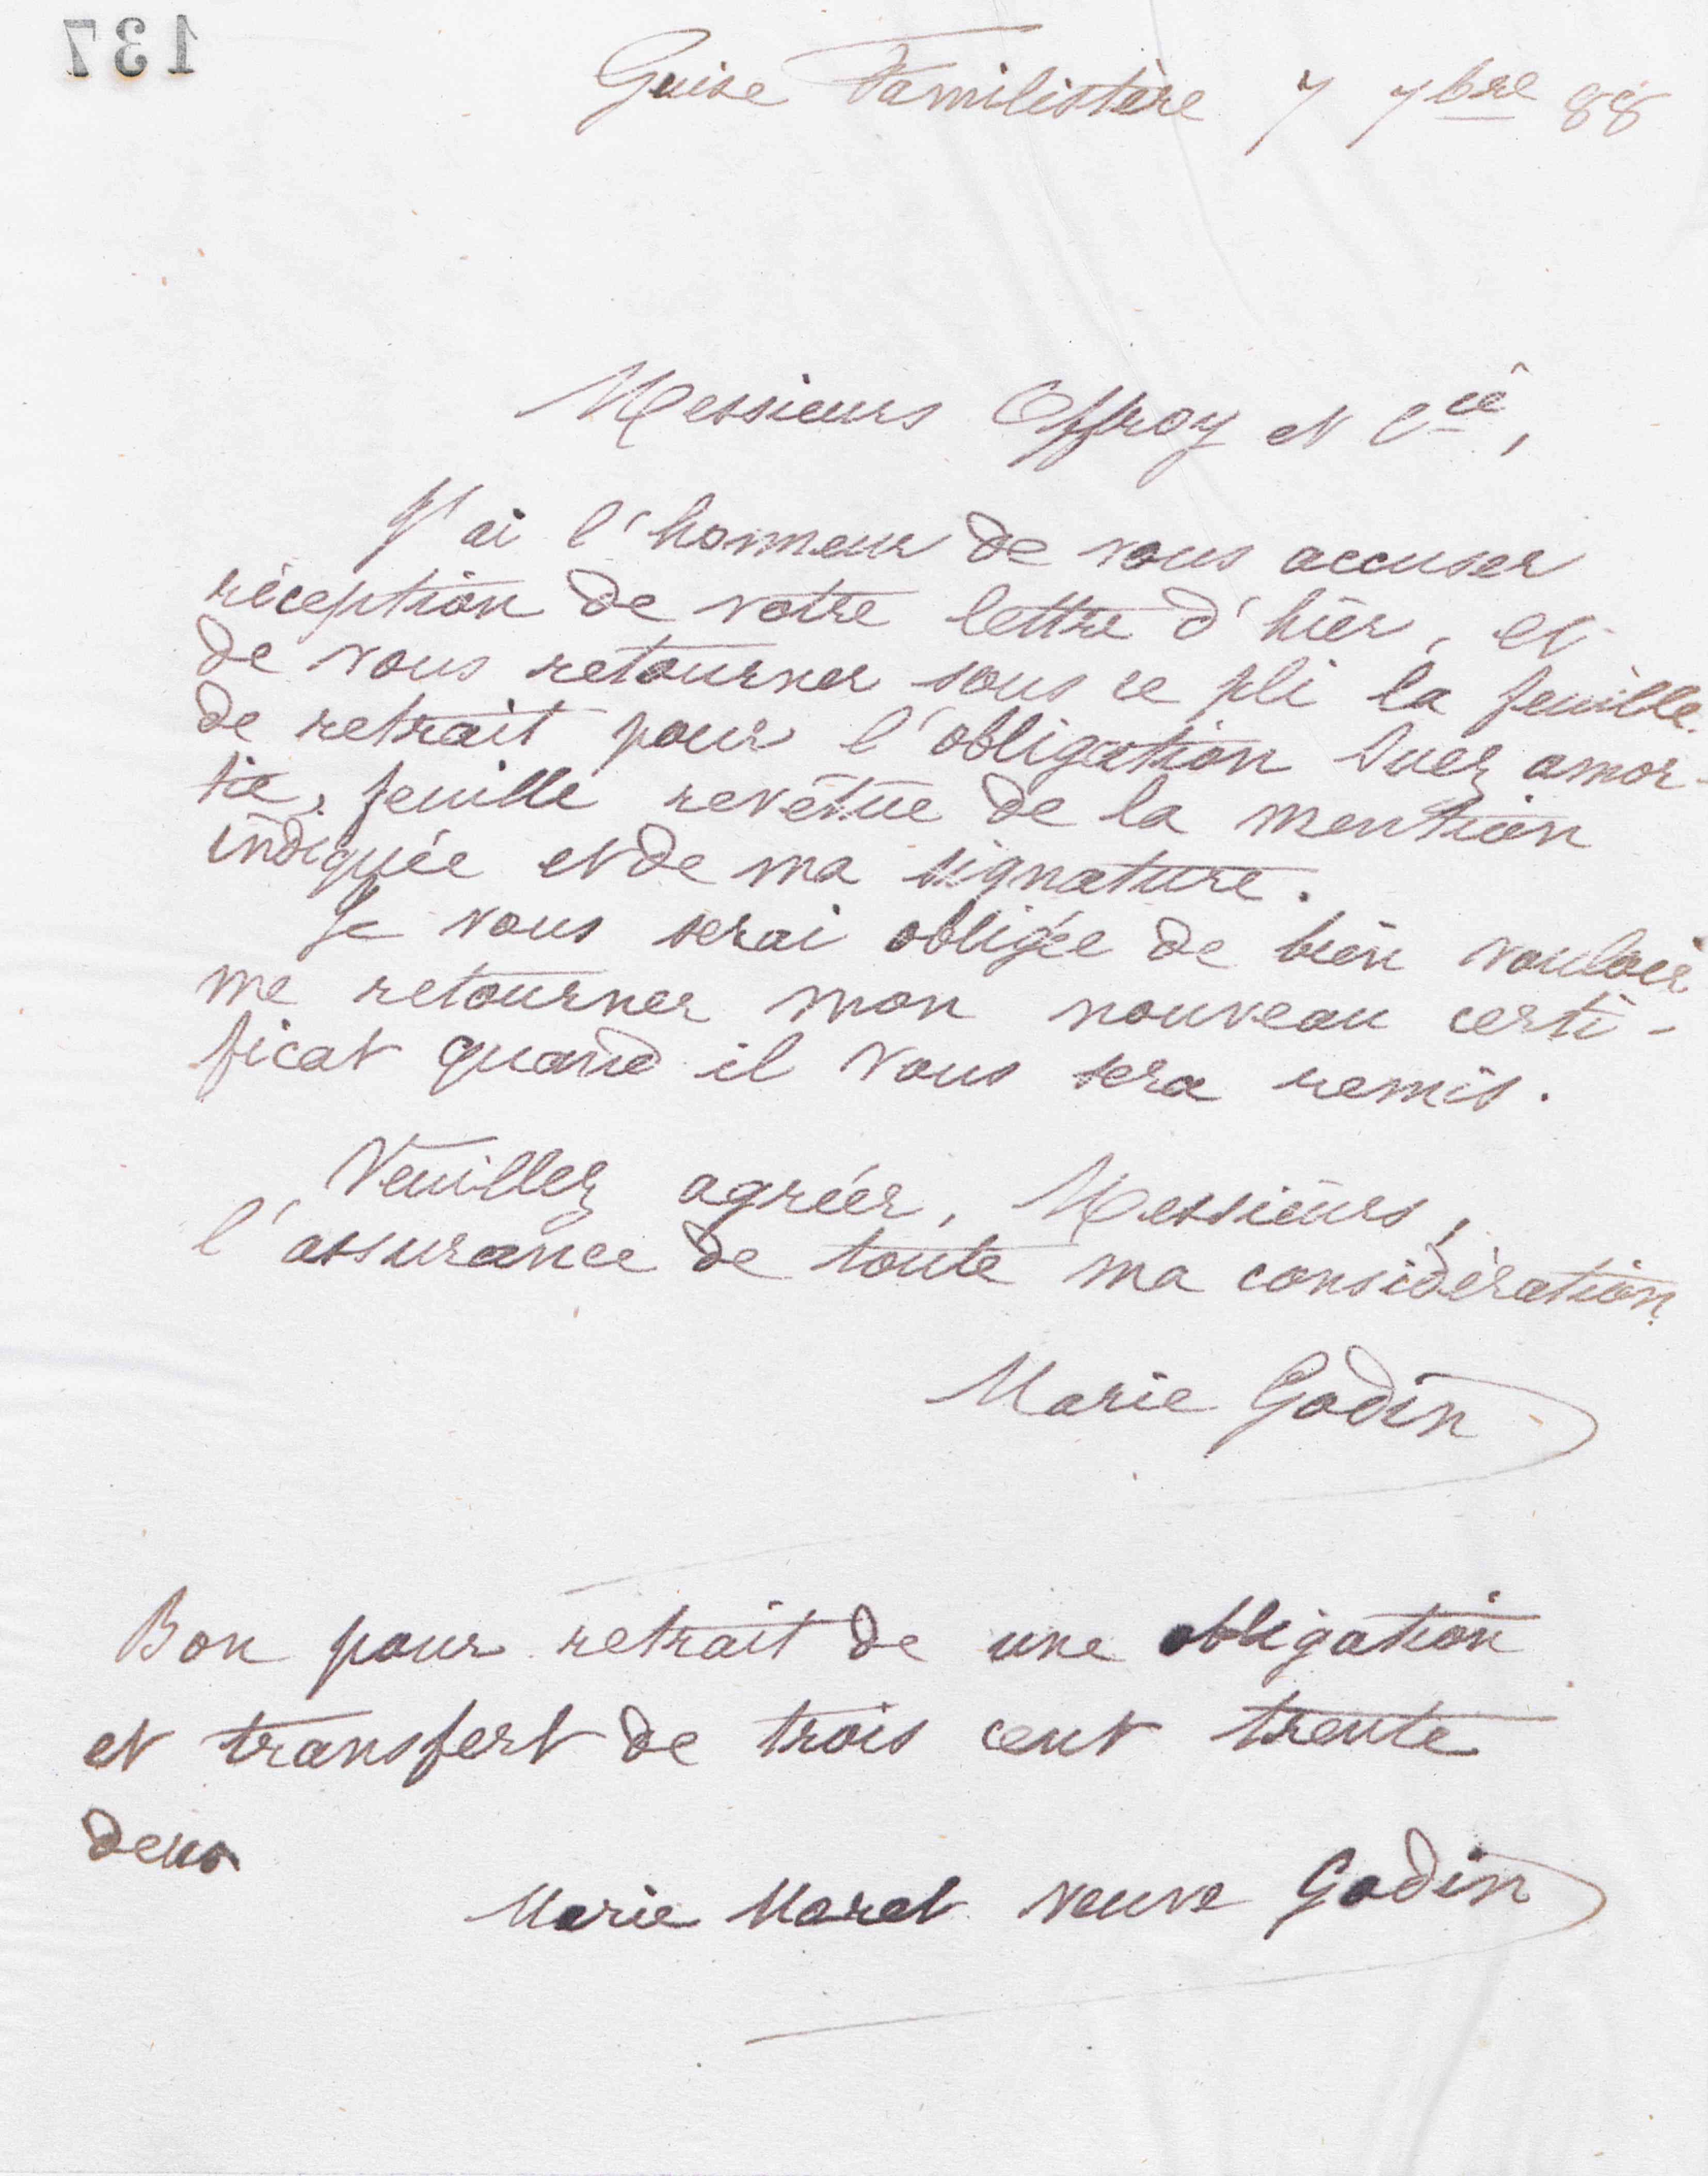 137
Guise Familistère 7 7bre 88
Messieurs Offroy et Cie,
J'ai l'honneur de vous accuser
réception de votre lettre d'hier, et
de vous retourner sous ce pli la feuille
de retrait pour l'obligation Suez amor-
tie, feuille revêtue de la mention
indiquée et de ma signature.
Je vous serai obligée de bien vouloir
me retourner mon nouveau certi-
ficat quand il vous sera remis.
Veuillez agréer, Messieurs,
l'assurance de toute ma considération.
Marie Godin
Bon pour retrait de une obligation
et transfert de trois cent trente
deux
Marie Moret veuve Godin